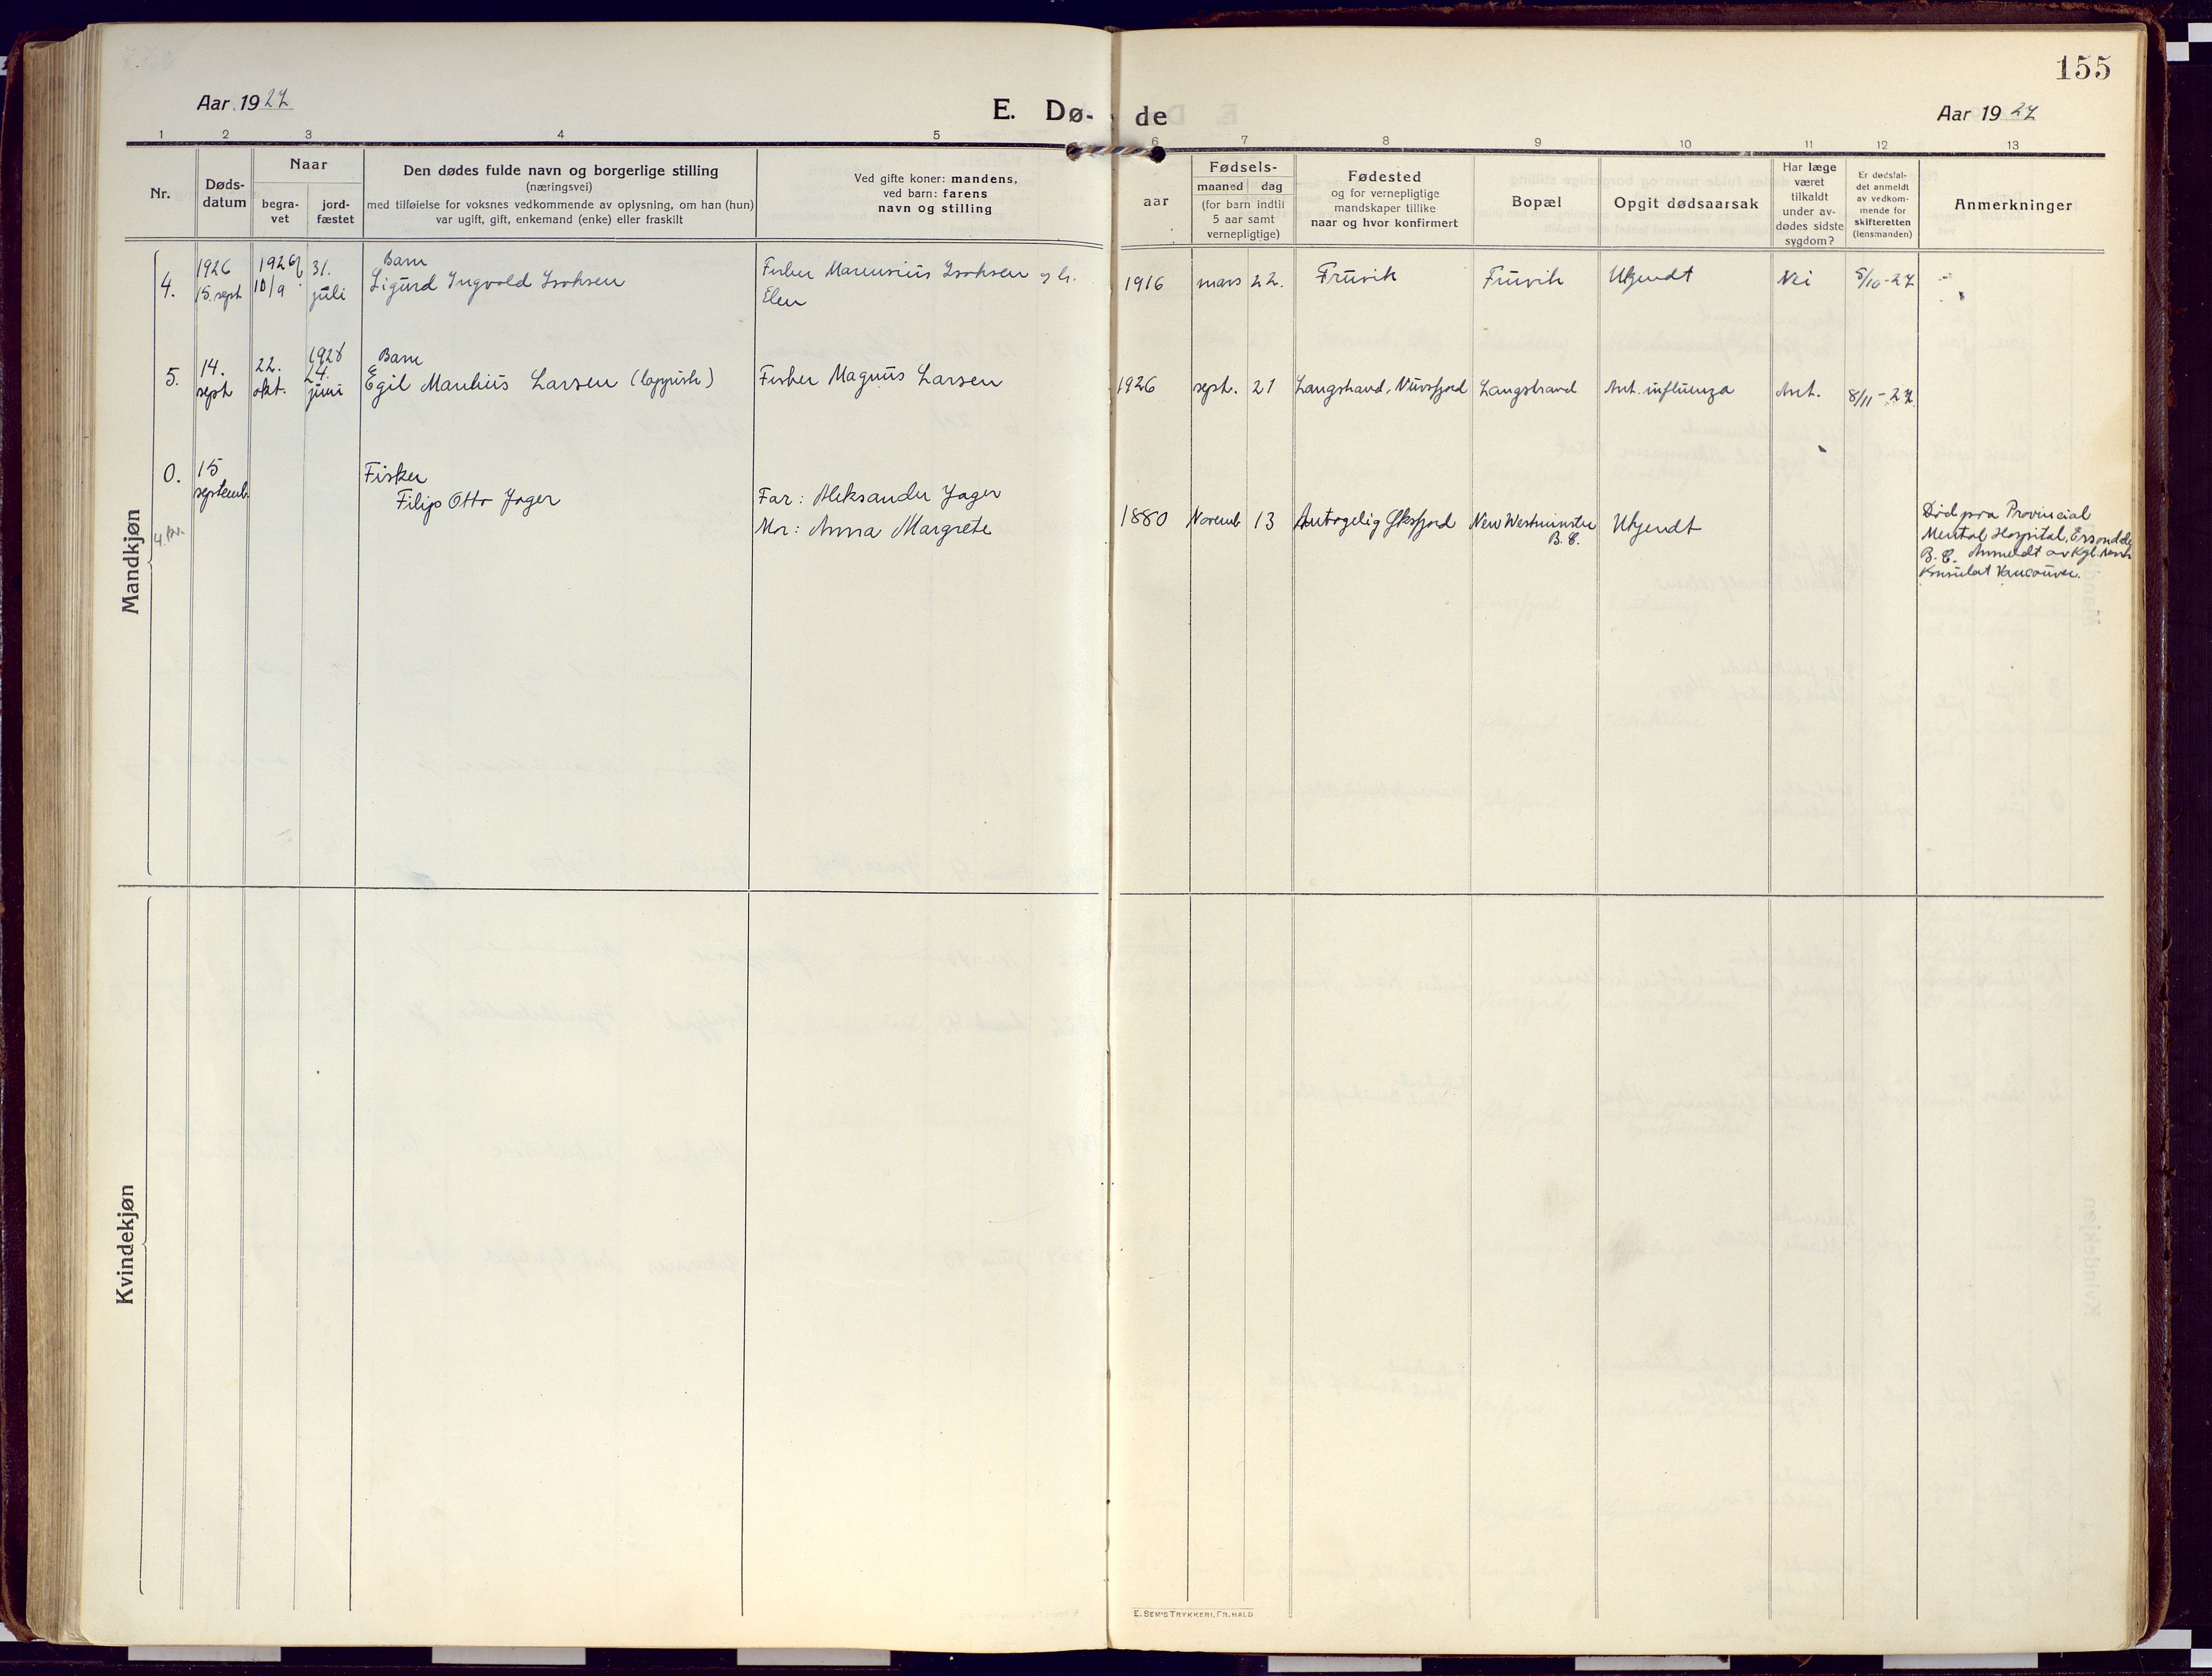 155
Aar 1927
E. Dø- de
Aar 1927
1 2 3 4 5 6 7 8 9 10 11 12 13
Nr.
Døds-
datum
Naar
begra-
vet
jord-
fæstet
Den dødes fulde navn og borgerlige stilling
(næringsvei)
med tilføielse for voksnes vedkommende av oplysning, om han (hun)
var ugift, gift, enkemand (enke) eller fraskilt
Ved gifte koner: mandens,
ved barn: farens
navn og stilling
aar
Fødsels-
maaned dag
(for barn indtil
5 aar samt
vernepligtige)
Fødested
og for vernepligtige
mandskaper tillike
naar og hvor konfirmert
Bopæl
Opgit dødsaarsak
Har læge
været
tilkaldt
under av-
dødes sidste
sygdom?
Er dødsfal-
det anmeldt
av vedkom-
mende for
skifteretten
(lensmanden)
Anmerkninger
Mandkjøn
4.
1926
15. sept
31.
juli
Barn
Sigurd Ingvold Isaksen
Fisker Marensius Isaksen og h.
Elen
1916
mars 22.
Fruvik
Fruvik
Ukjendt
Nei
5/10-27
5.
14.
sept
22.
okt.
1928
24.
juni
Barn
Egil Manhius Larsen (lappisk)
Fisker Magnus Larsen
1926
sept. 21
Langstrand,
Langstrand
Ant. influenza
Ant.
8/11-27.
0.
15
septemb.
Fisker
Filip Otto Jager
Far: Aleksander Jager
Mor: Anna Margrete
1880
Novemb 13
Antagelig Øksfjord
New Westminster
B. C.
Ukjendt
Død paa Provincial
Mental Hospital,
B. C. Anmeldt av Kgl. norsk
Konsulat Vancouver.
Kvindekjøn
E. SEM'S TRYKKERI, FR. HALD